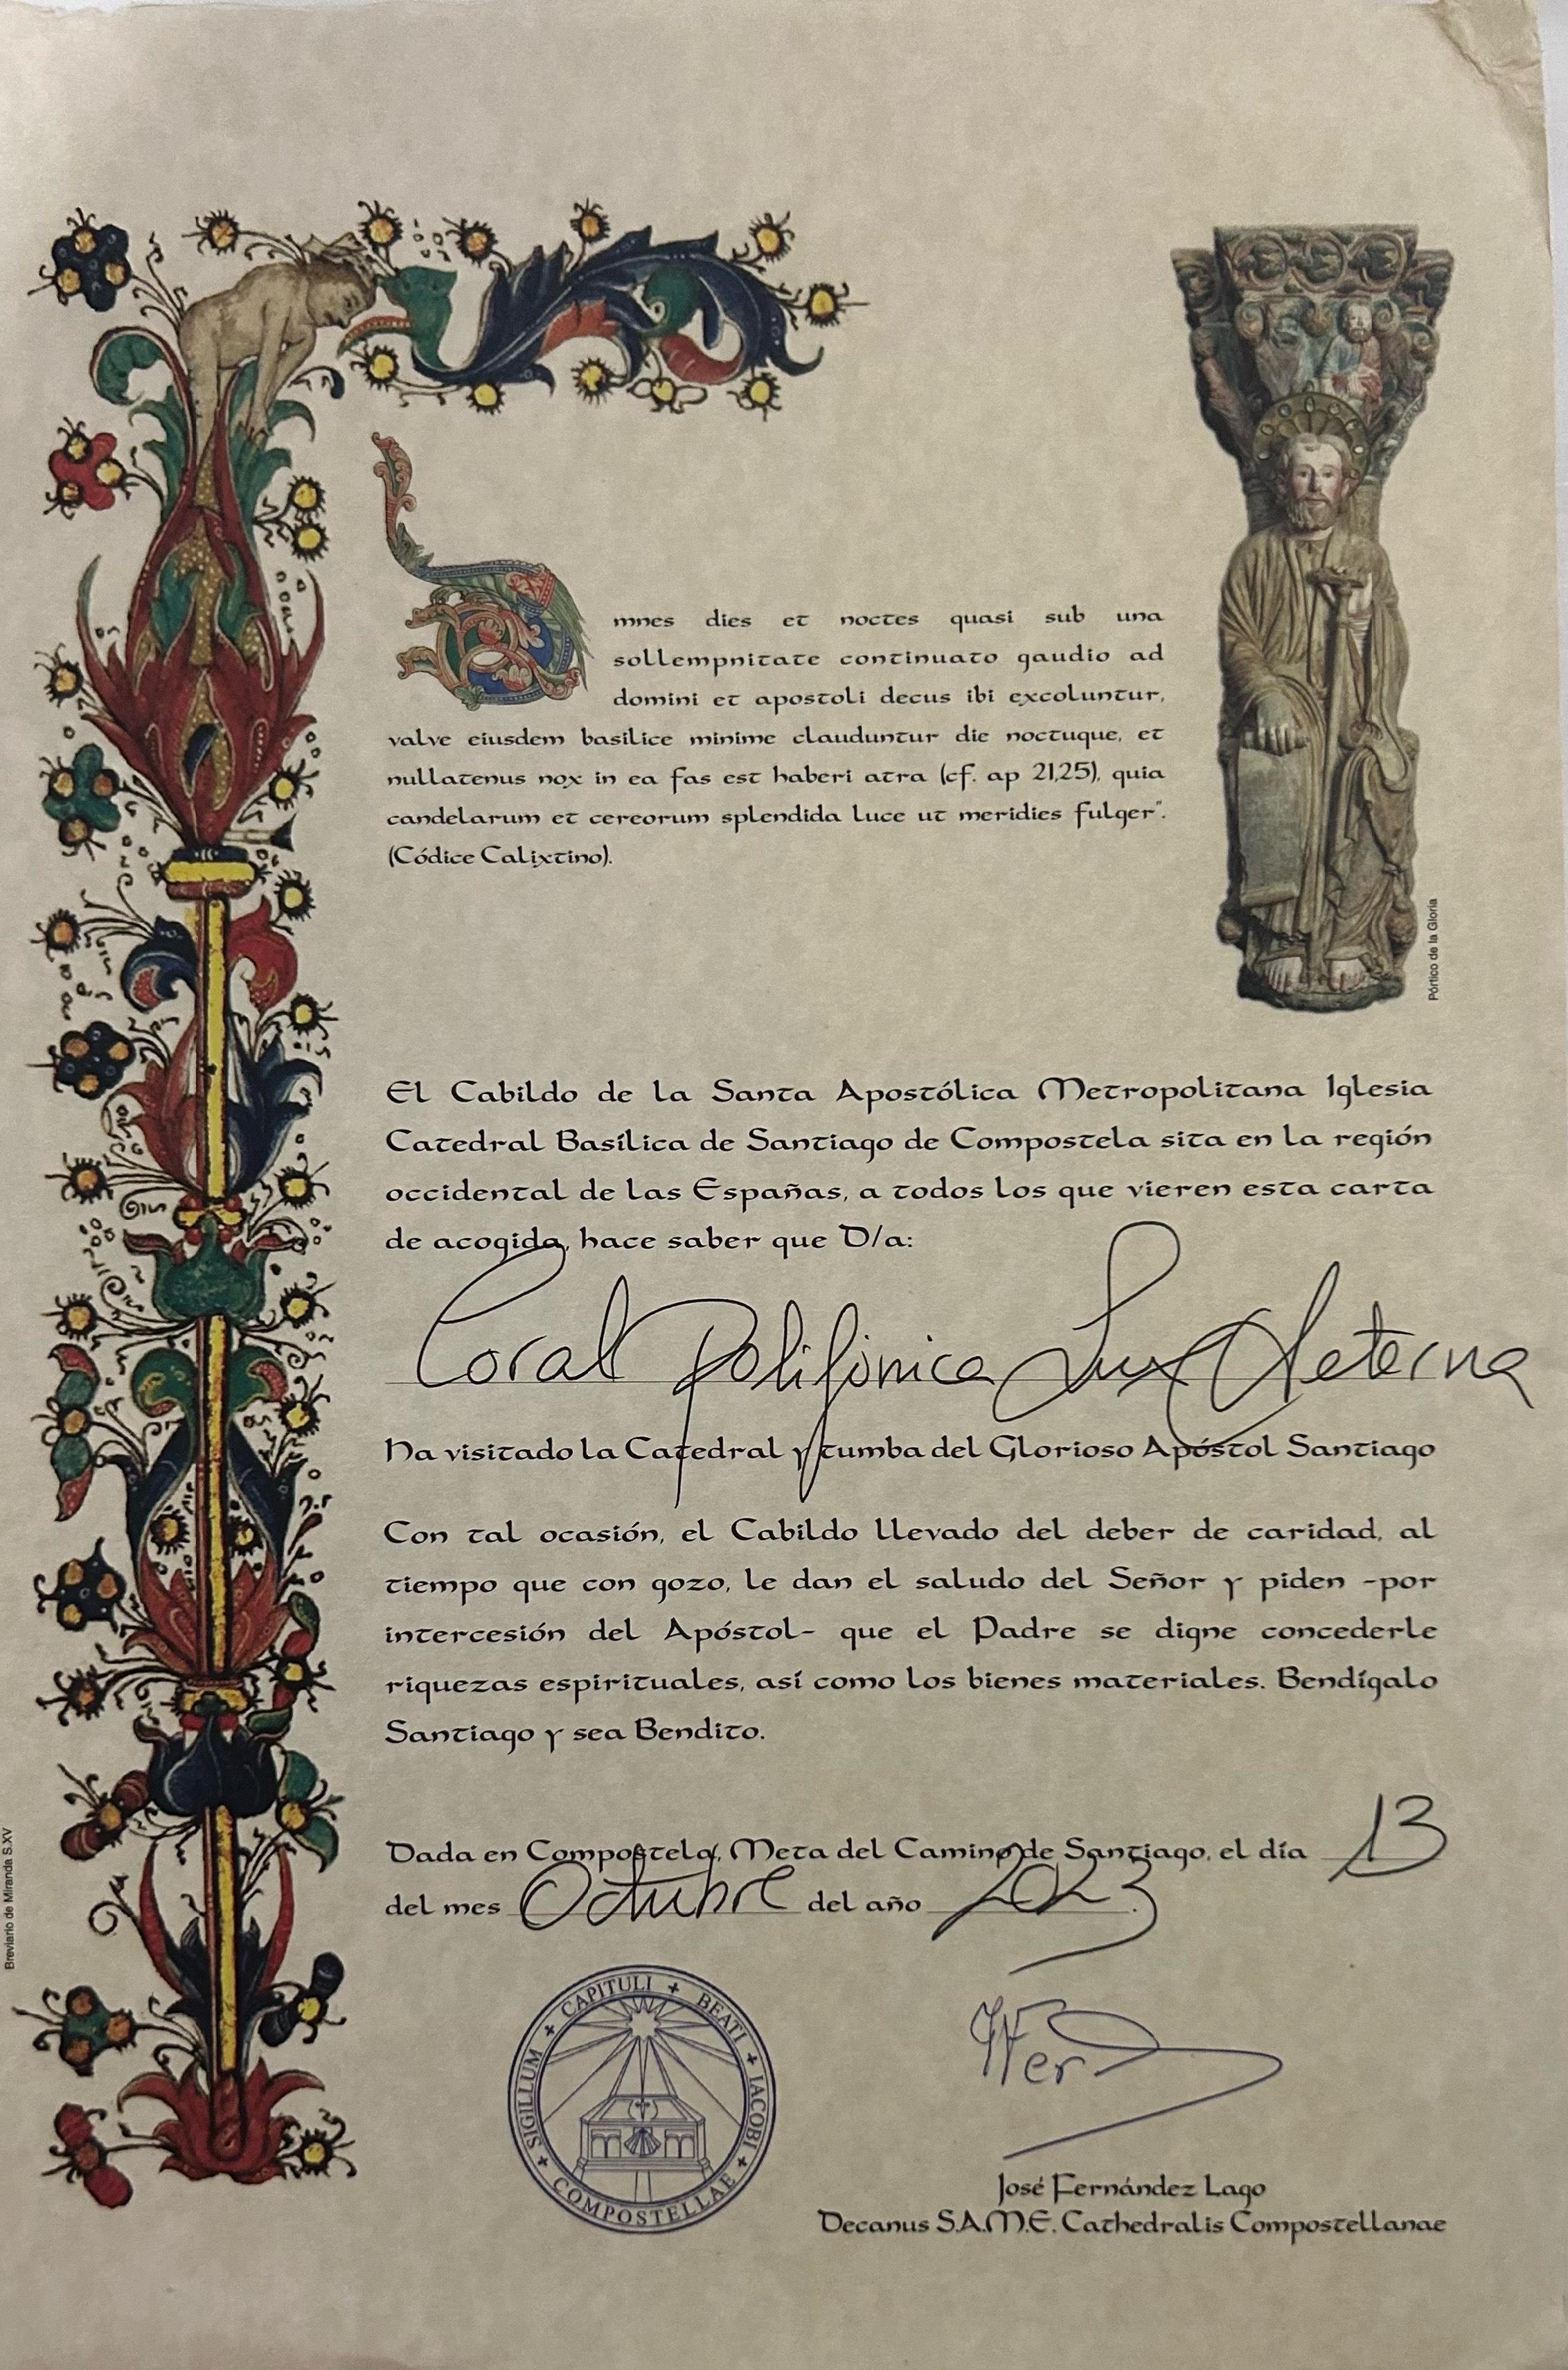 mnes dies et noctes quasi sub una
sollempnitate continuato gaudio ad
domini et apostoli decus ibi excoluntur,
valve eiusdem basilice minime clauduntur die noctuque, et
nullatenus nox in ea fas est haberi atra (cf. ap 21,25), quia
candelarum et cereorum splendida luce ut meridies fulger”.
(Códice Calixtino).
Pórtico de la Gloria
El Cabildo de la Santa Apostólica Metropolitana Iglesia
Catedral Basílica de Santiago de Compostela sita en la región
occidental de las Españas, a todos los que vieren esta carta
de acogida, hace saber que D/a:
Coral Polifónica Lux Aeterna
Ha visitado la Catedral y tumba del Glorioso Apóstol Santiago
Con tal ocasión, el Cabildo llevado del deber de caridad, al
tiempo que con gozo, le dan el saludo del Señor y piden -por
intercesión del Apóstol- que el Padre se digne concederle
riquezas espirituales, así como los bienes materiales. Bendígalo
Santiago y sea Bendito.
Dada en Compostela, Meta del Camino de Santiago, el día 13
del mes Octubre del año 2023.
Breviario de Miranda S.XV
SIGILLUM + CAPITULI + BEATI + IACOBI + COMPOSTELLAE +
José Fernández Lago
Decanus S.A.M.E. Cathedralis Compostellanae